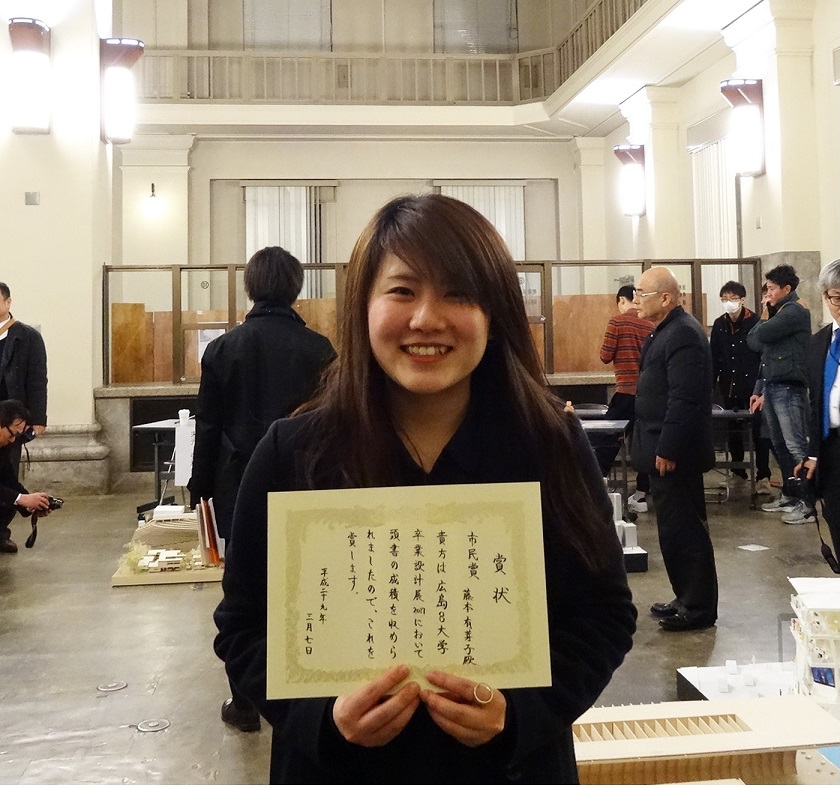 賞状
市民賞 藤本有芽子殿
貴方は広島8大学
卒業設計展2017において
頭書の成績を収めら
れましたので、これを
賞します。
平成二十九年
三月七日